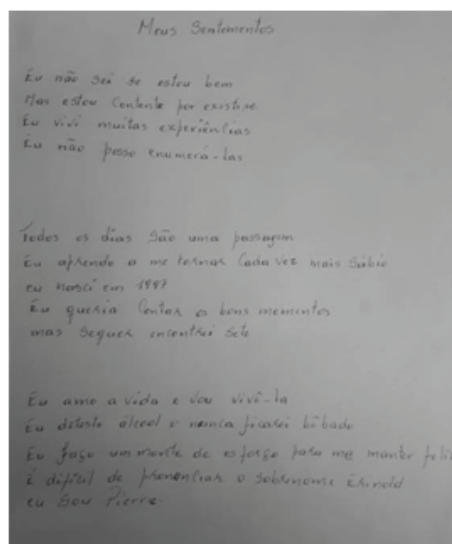 Meus Sentementos
Eu não sei se estou bem
Mas estou contente por existir
Eu vivi muitas experiências
Eu não posso enumerá-las
Todos os dias são uma passagem
Eu aprendo a me tornar cada vez mais sábio
eu nasci em 1997
Eu queria contar os bons momentos
mas sequer encontrei sete
Eu amo a vida e vou vivê-la
Eu detesto álcool e nunca ficarei bêbado
Eu faço um monte de esforço para me manter feliz
É difícil de pronunciar o sobrenome
eu sou Pierre.